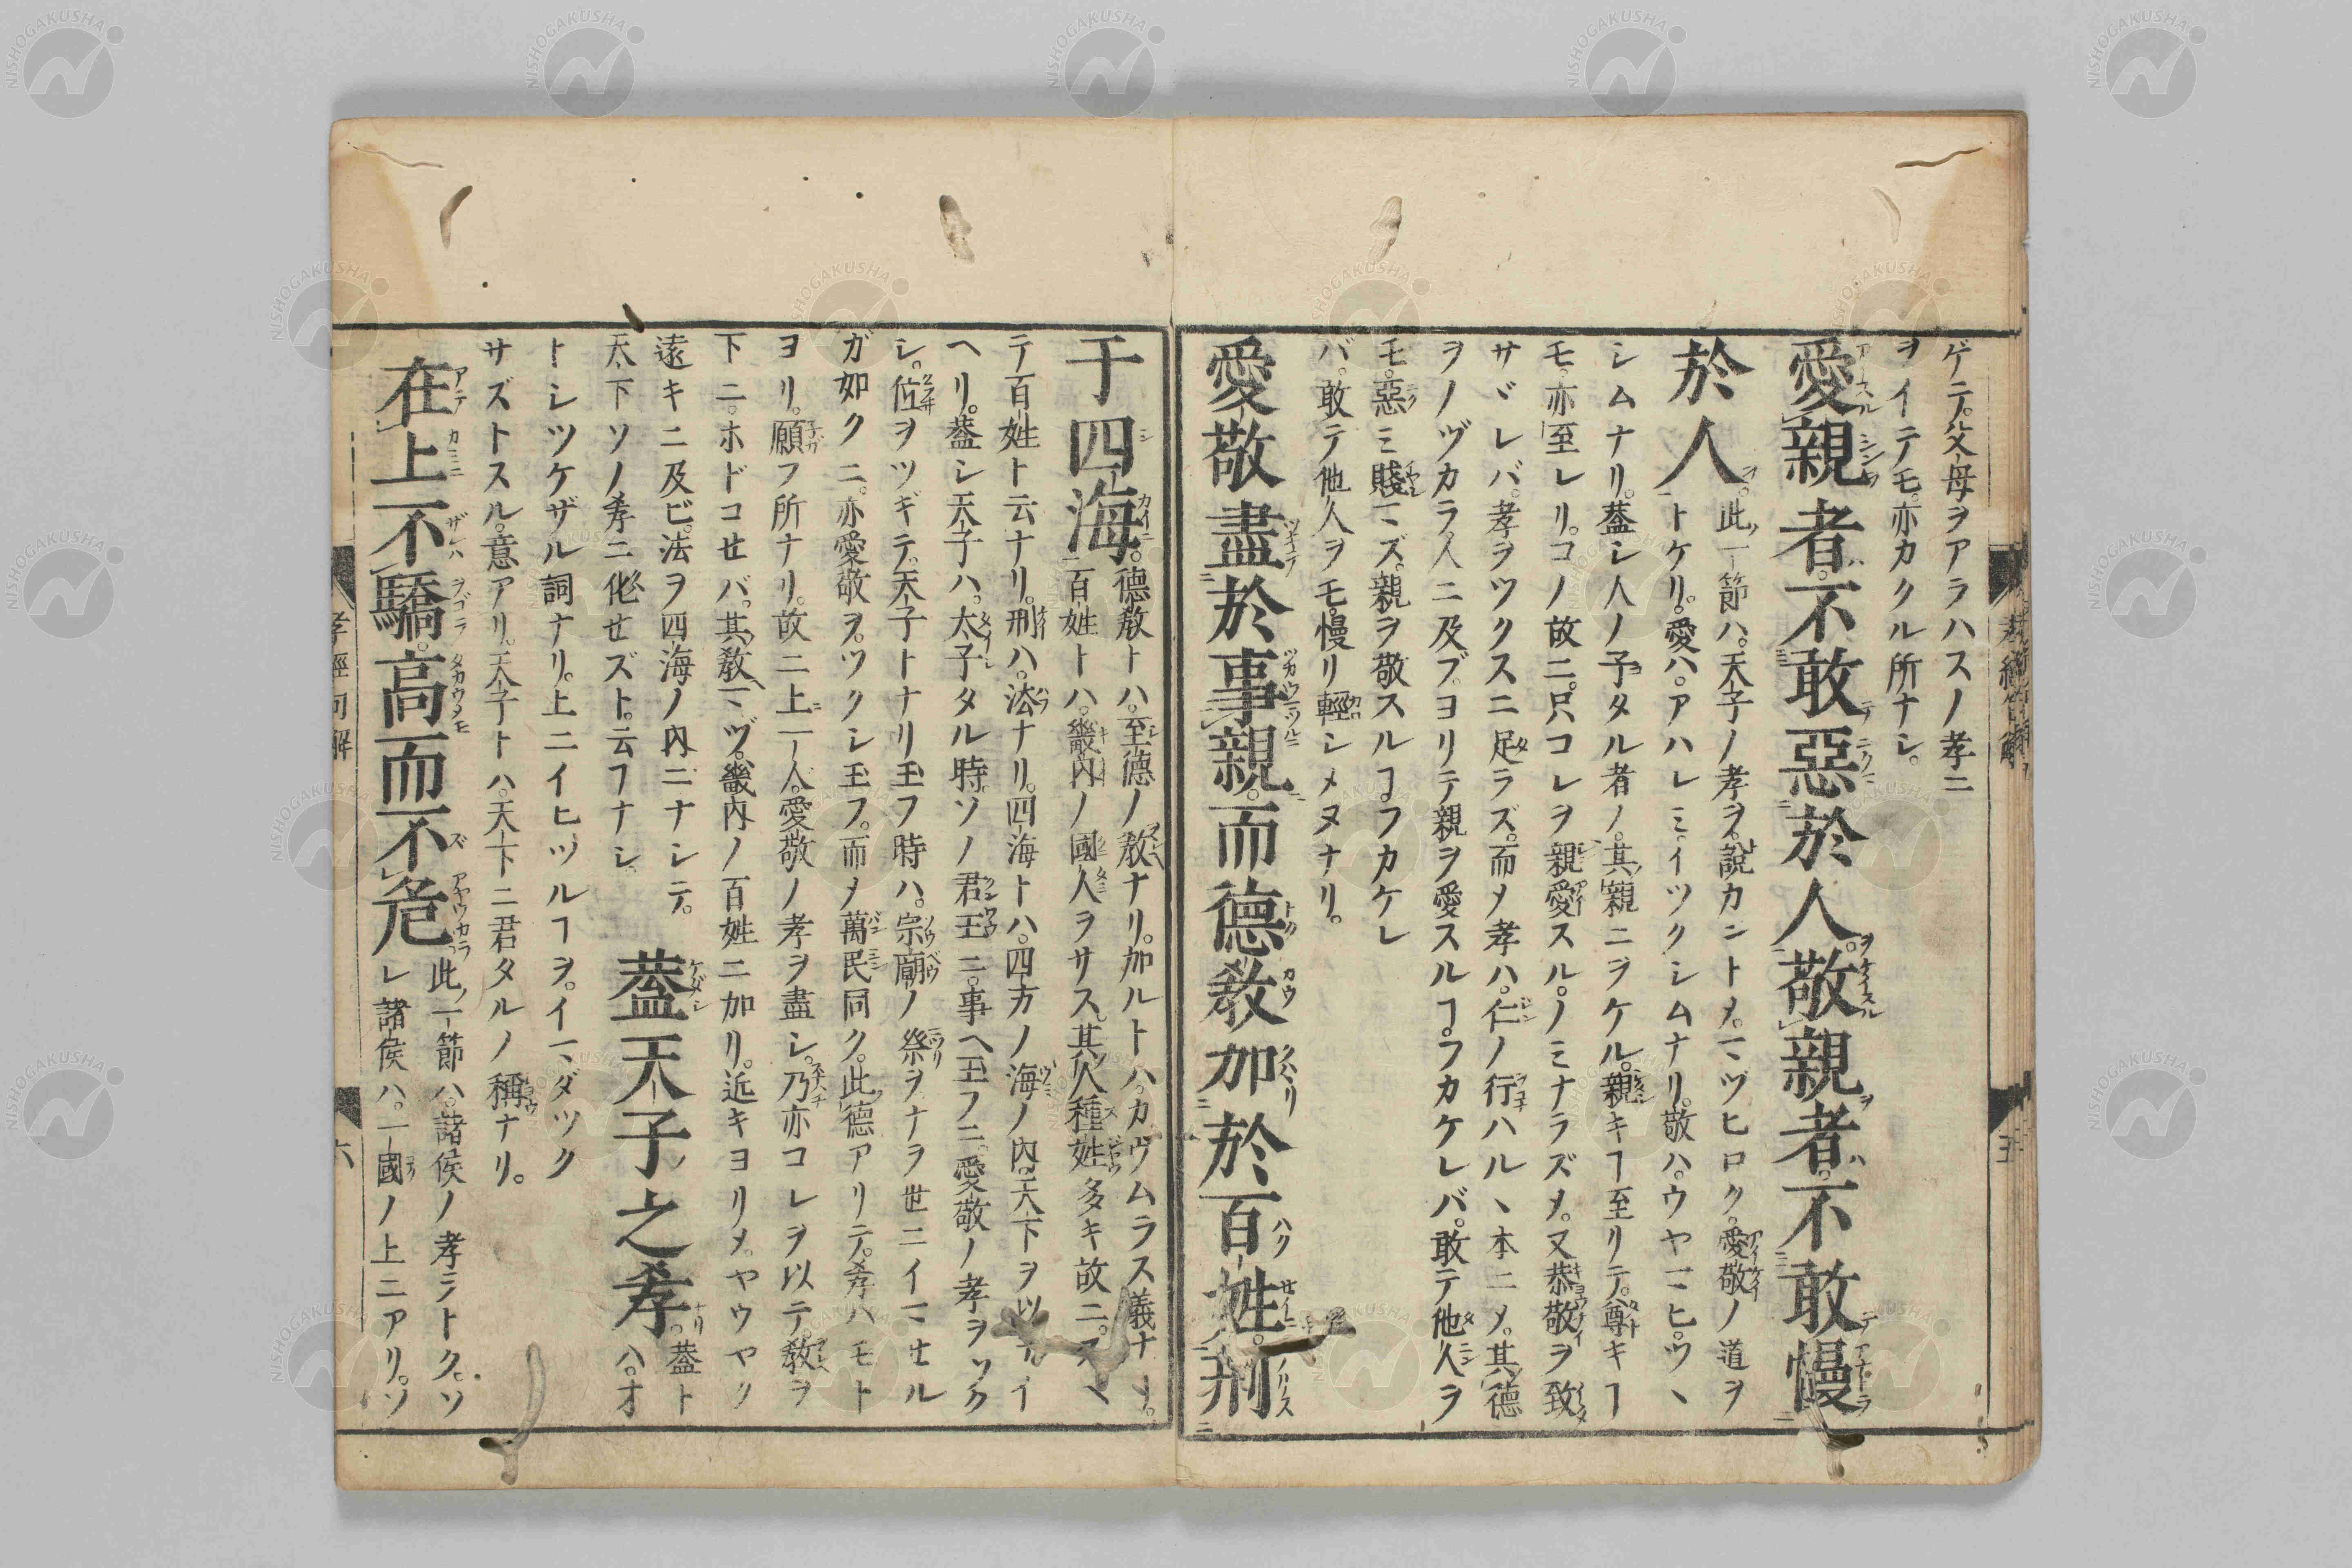 ゲテ。父母ヲアラハスノ孝ニ
ヲイテモ。亦カクル所ナシ。
愛親者。不敢惡於人。敬親者。不敢慢
於人。此一節ハ。天子ノ孝ヲ。說カントメ。マヅヒロク。愛敬ノ道ヲ
トケリ。愛ハ。アハレミ。イツクシムナリ。敬ハ。ウヤマヒ。ツヽ
シムナリ。蓋シ人ノ子タル者ノ。其親ニヲケル。親キヿ至リテ。尊キヿ
モ。亦至レリ。コノ故ニ。只コレヲ親愛スル。ノミナラズメ。又恭敬ヲ致
サヾレバ。孝ヲツクスニ足ラズ。而メ孝ハ。仁ノ行ハルヽ本ニメ。其德
ヲノヅカラ。人ニ及ブ。ヨリテ親ヲ愛スルヿ。フカケレバ。敢テ他人ヲ
モ。惡ミ賤マズ。親ヲ敬スルヿ。フカケレ
バ。敢テ他人ヲモ。慢リ輕シメヌナリ。
愛敬盡於事親。而德敎加於百姓。刑
于四海。德敎トハ。至德ノ敎ナリ。加ルトハ。カウムラス義ナ
百姓トハ。畿內ノ國人ヲサス。其人種姓多キ故ニ。
テ百姓ト云ナリ。刑ハ。法ナリ。四海トハ。四方ノ海ノ內。天下ヲ以テイ
ヘリ。蓋シ天子ハ。太子タル時。ソノ君王ニ。事ヘ玉フニ。愛敬ノ孝ヲツク
シ。位ヲツギテ。天子トナリ玉フ時ハ。宗廟ノ祭ヲナヲ世ニイマセル
ガ如クニ。亦愛敬ヲ。ツクシ玉フ。而メ萬民同ク。此德アリテ。孝ハモト
ヨリ。願フ所ナリ。故ニ上一人。愛敬ノ孝ヲ盡シ。乃亦コレヲ以テ。敎ヲ
下ニ。ホドコセバ。其敎マヅ。畿內ノ百姓ニ加リ。近キヨリメ。ヤウヤク
遠キニ及ビ。法ヲ四海ノ內ニナシテ。
天下ソノ孝ニ化セズト。云フナシ。
蓋天子之孝。蓋ト
ハ。オ
トシツケザル詞ナリ。上ニイヒツルヿヲ。イマダツク
サズトスル。意アリ。天子トハ。天下ニ君タルノ稱ナリ。
在上不驕。高而不危。此一節ハ。諸侯ノ孝ヲトク。ソ
レ諸侯ハ。一國ノ上ニアリ。ソ
孝經句解
六
五
NISHOGAKUSHA